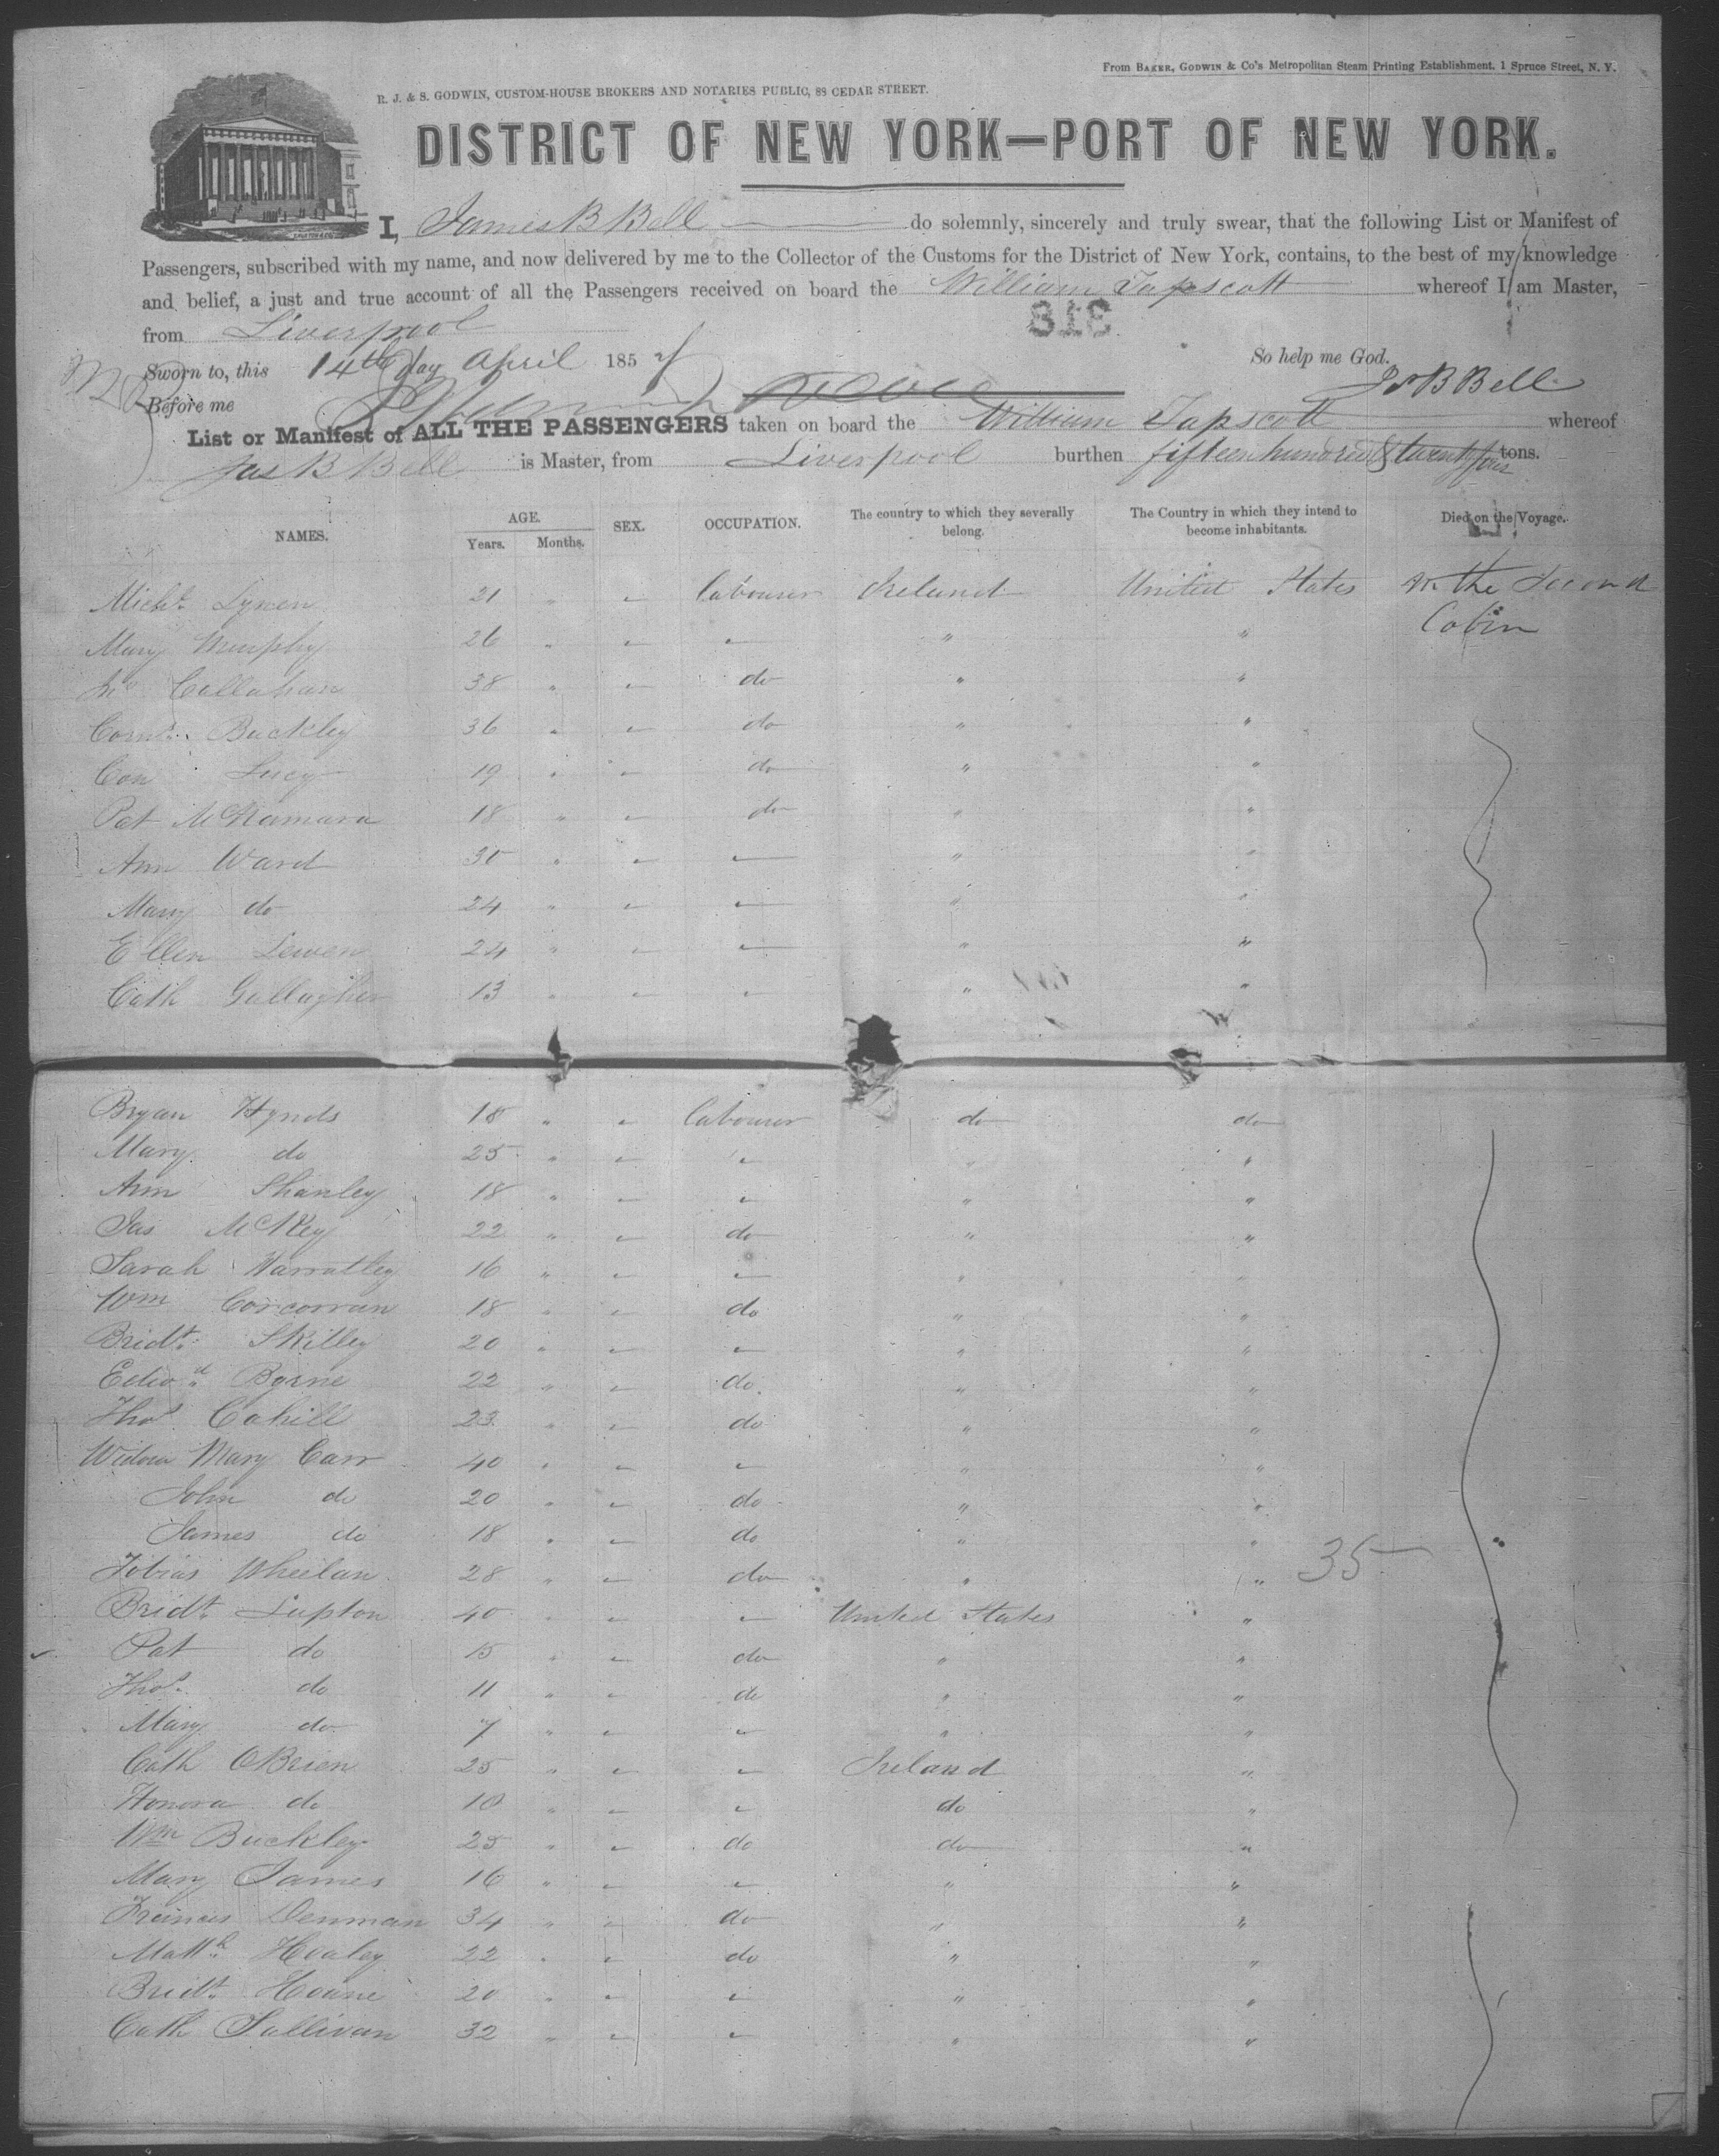 From BAKER, GODWIN & Co's Metropolitan Steam Printing Establishment. 1 Spruce Street, N. Y.
R. J. & S. GODWIN, CUSTOM-HOUSE BROKERS AND NOTARIES PUBLIC, 88 CEDAR STREET.
DISTRICT OF NEW YORK—PORT OF NEW YORK.
I, James B Bell do solemnly, sincerely and truly swear, that the following List or Manifest of
Passengers, subscribed with my name, and now delivered by me to the Collector of the Customs for the District of New York, contains, to the best of my knowledge
and belief, a just and true account of all the Passengers received on board the William Tapscott whereof I am Master,
from Liverpool
318
Sworn to, this 14th day April 1857 So help me God.
Before me Js B Bell
List or Manifest of ALL THE PASSENGERS taken on board the William Tapscott whereof
Jas B Bell is Master, from Liverpool burthen fifteen hundred & twenty four tons.
NAMES. AGE. Years. Months. SEX. OCCUPATION. The country to which they severally belong. The Country in which they intend to become inhabitants. Died on the Voyage.
Michl 21 " labourer Ireland United States In the Second
Cabin
Mary Murphy 26 " " "
Callahan 38 " do " "
Buckley 36 " do " "
Con Lucy 19 " do " "
Pat McNamara 18 " do " "
Ann Ward 30 " " "
Mary do 24 " " "
Ellen 24 " " "
Cath Gallagher 13 " " "
Bryan Hynds 18 " labourer do do
Mary do 25 " " "
Ann Shanley 18 " " "
Jas 22 " do " "
Sarah 16 " " "
Wm Corcorran 18 " do " "
Bridt Skilley 20 " " "
Edwd Byrne 22 " do " "
Thos Cahill 23 " do " "
Widow Mary Carr 40 " " "
John do 20 " do " "
James do 18 " do " "
Tobias Wheelan 28 " do " " 35
Bridt Lupton 40 " United States "
Pat do 15 " do " "
Thos do 11 " do " "
Mary do 7 " " "
Cath OBrien 25 " Ireland "
Honora do 10 " do "
Wm Buckley 25 " do do "
Mary James 16 " " "
Francis Denman 34 " do " "
Matth Healey 22 " do " "
Bridt 20 " " "
Cath Sullivan 32 " " "